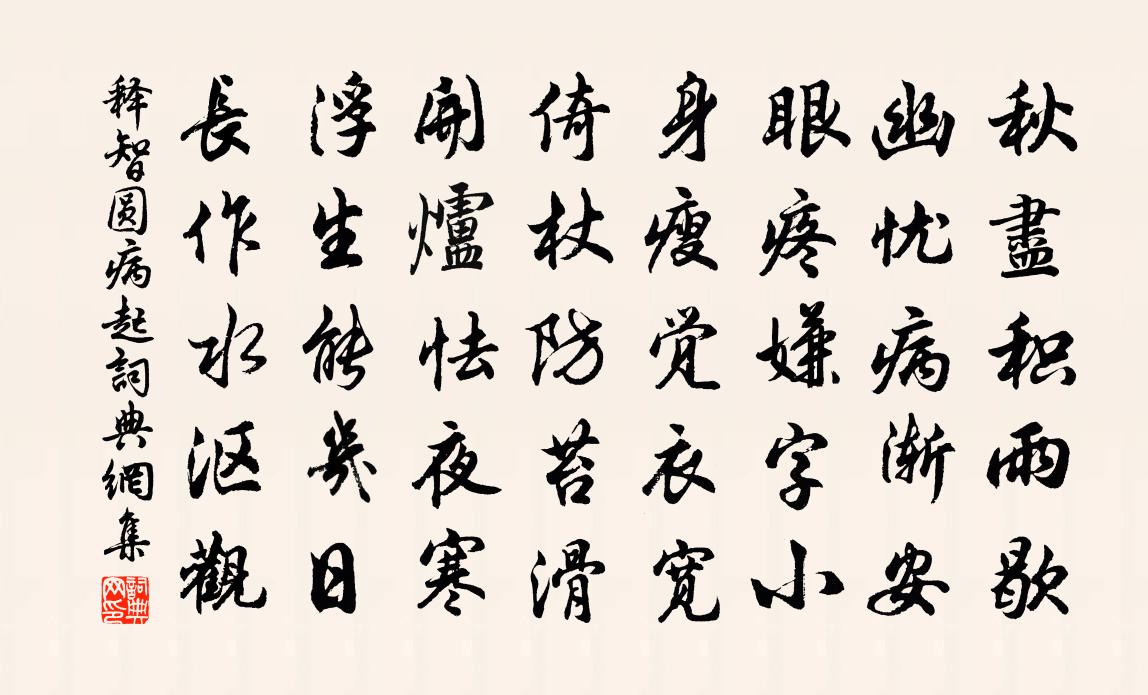 秋盡积雨歇
幽忧病渐安
眼疼嫌字小
身瘦觉衣宽
倚杖防苔滑
開爐怯夜寒
浮生能幾日
長作水沤觀
释智圆病起詞典網集
詞典网印